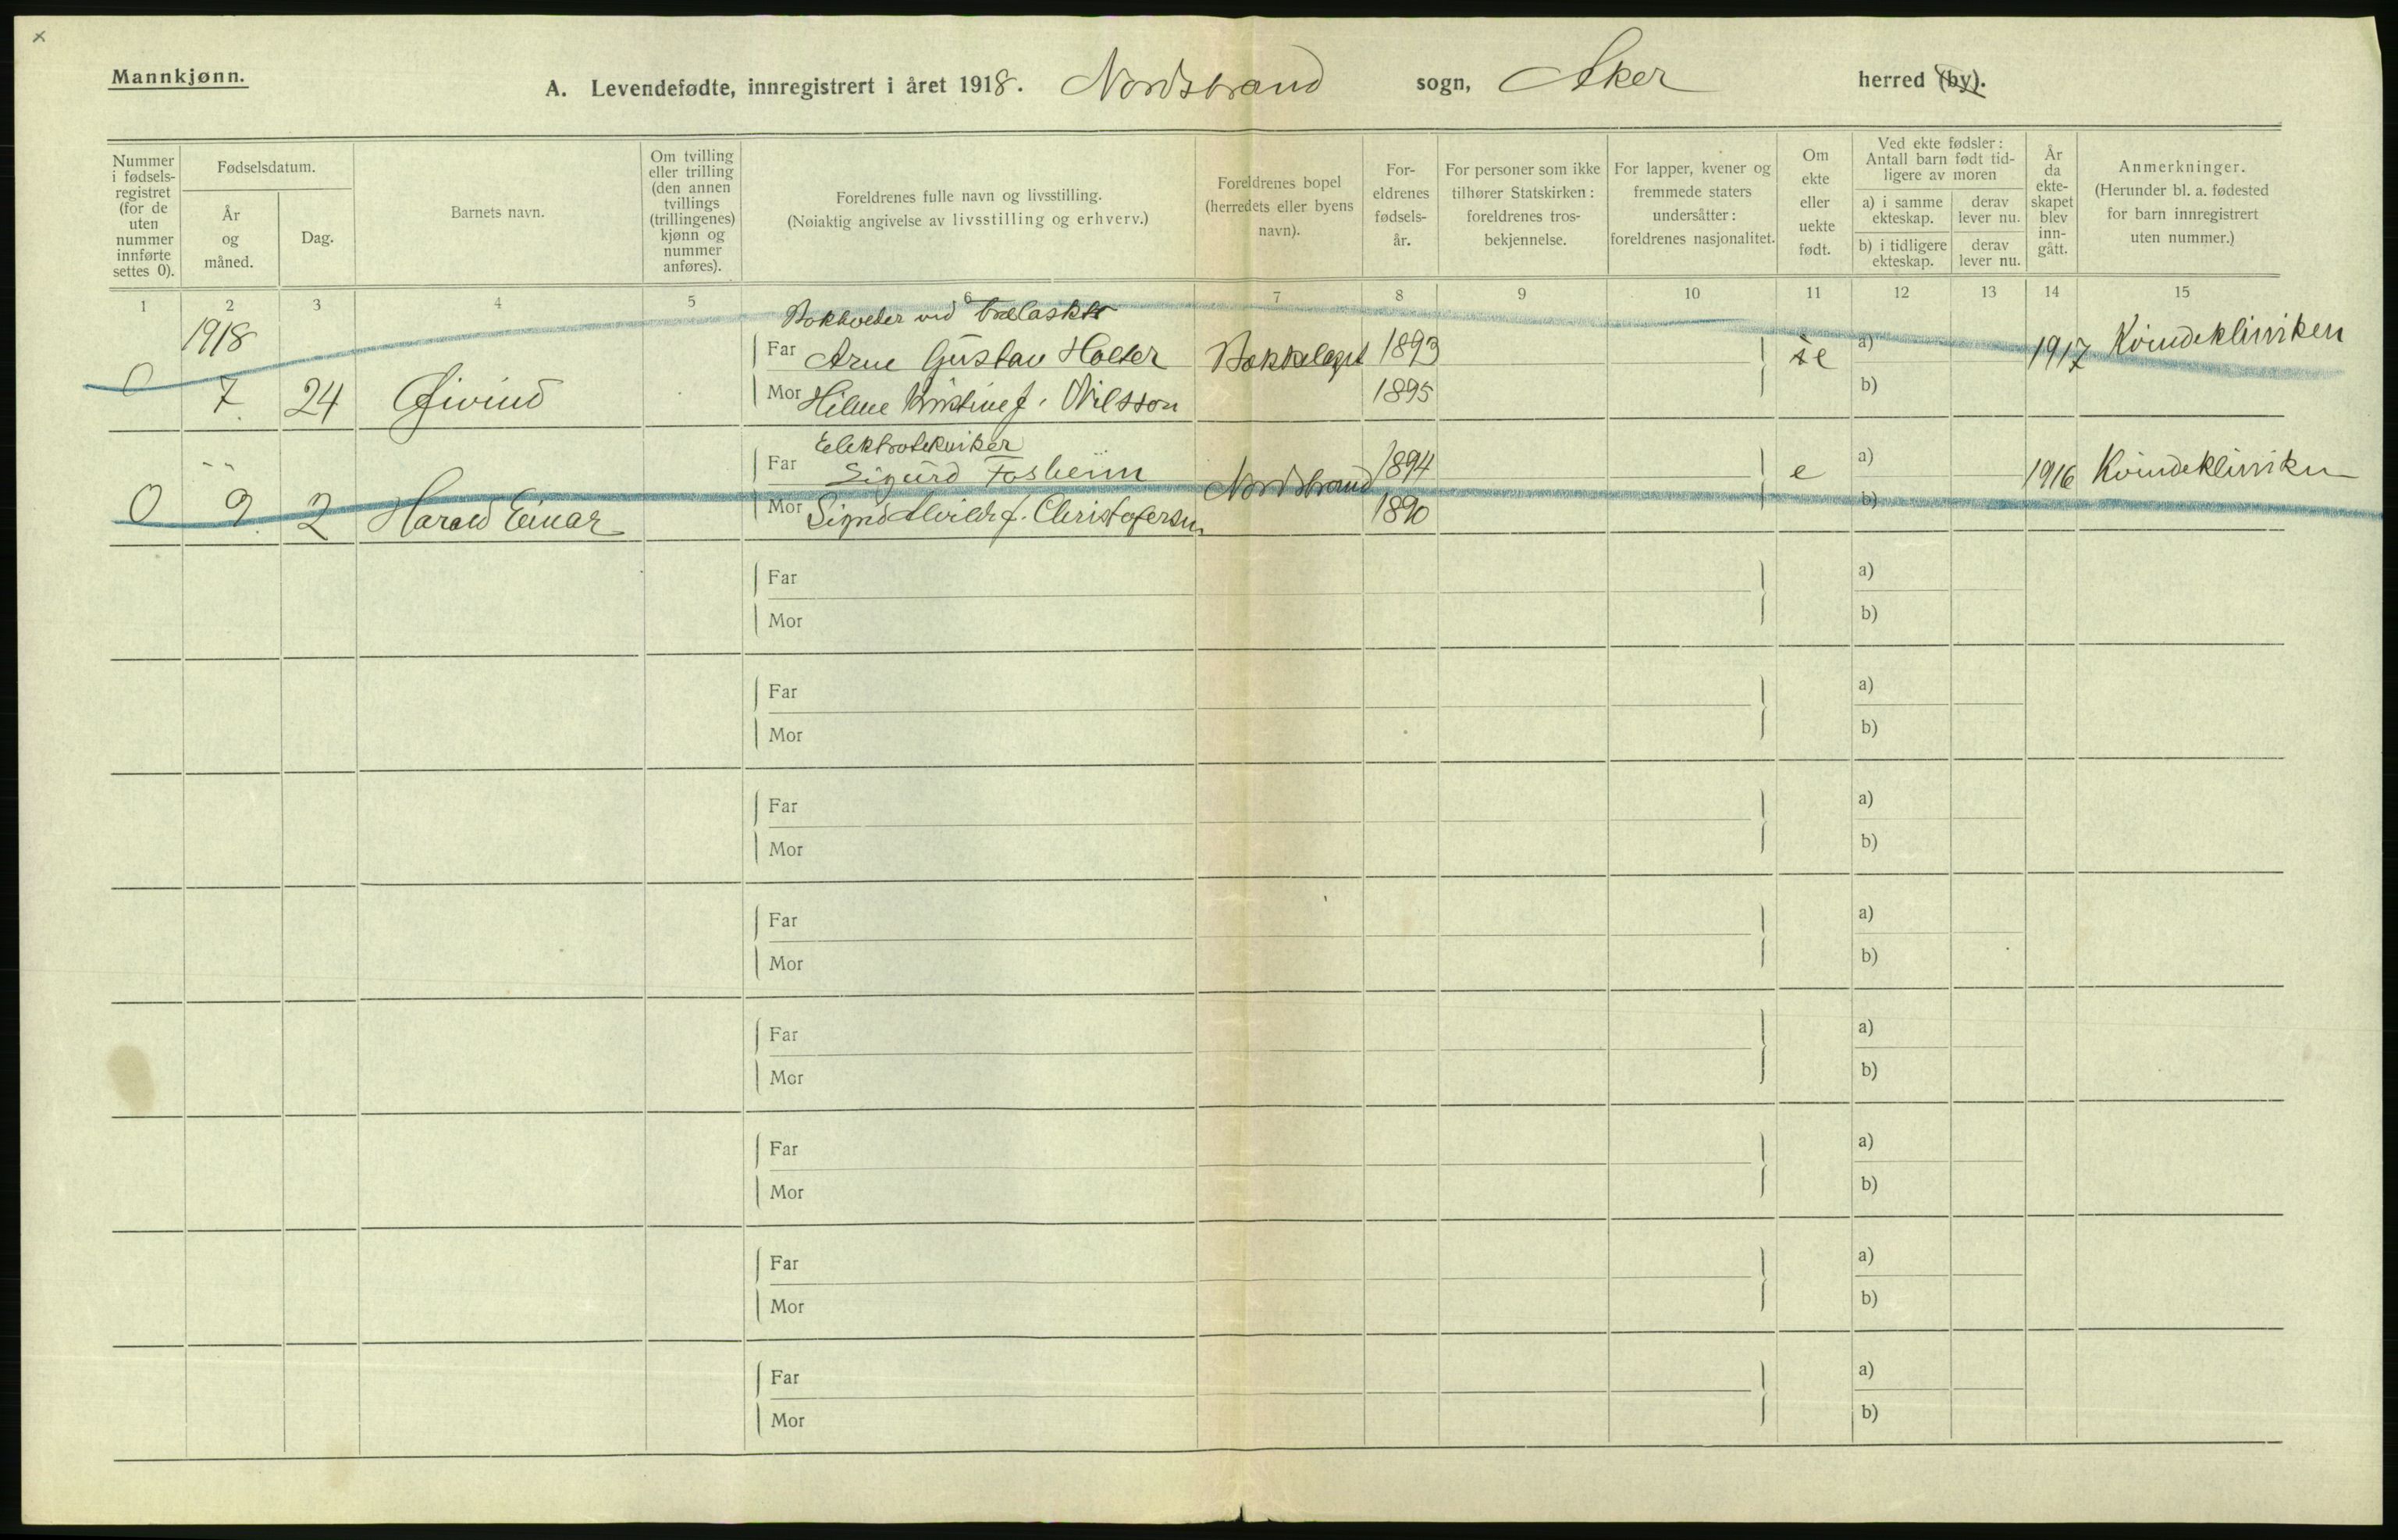 Mannkjønn.
A. Levendefødte, innregistrert i året 1918. Nordstrand sogn, Aker herred (by).
Nummer i fødsels-registret (for de uten nummer innførte settes 0).
Fødselsdatum.
År og måned.
Dag.
Barnets navn.
Om tvilling eller trilling (den annen tvillings (trillingenes) kjønn og nummer anføres).
Foreldrenes fulle navn og livsstilling.
(Nøiaktig angivelse av livsstilling og erhverv.)
Foreldrenes bopel (herredets eller byens navn).
For-eldrenes fødsels-år.
For personer som ikke tilhører Statskirken: foreldrenes tros-bekjennelse.
For lapper, kvener og fremmede staters undersåtter: foreldrenes nasjonalitet.
Om ekte eller uekte født.
Ved ekte fødsler: Antall barn født tid-ligere av moren
a) i samme ekteskap.
derav lever nu.
b) i tidligere ekteskap.
derav lever nu.
År da ekte-skapet blev inn-gått.
Anmerkninger.
(Herunder bl. a. fødested for barn innregistrert uten nummer.)
1 2 3 4 5 6 7 8 9 10 11 12 13 14 15
1918
Bokholder ved
Far Arne Gustav Holter Bekkelaget 1893 e a) 1917 Kvindekliniken
0 7 24 Øivind
Mor Kristine f. Nilsson 1895 b)
Elektrotekniker
Far Sigurd Fosheim Nordstrand 1894 e a) 1916 Kvindekliniken
0 9 2 Harald Einar
Mor Signe f. Christofersen 1890 b)
Far a)
Mor b)
Far a)
Mor b)
Far a)
Mor b)
Far a)
Mor b)
Far a)
Mor b)
Far a)
Mor b)
Far a)
Mor b)
Far a)
Mor b)